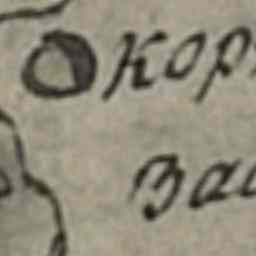 Окор
зас